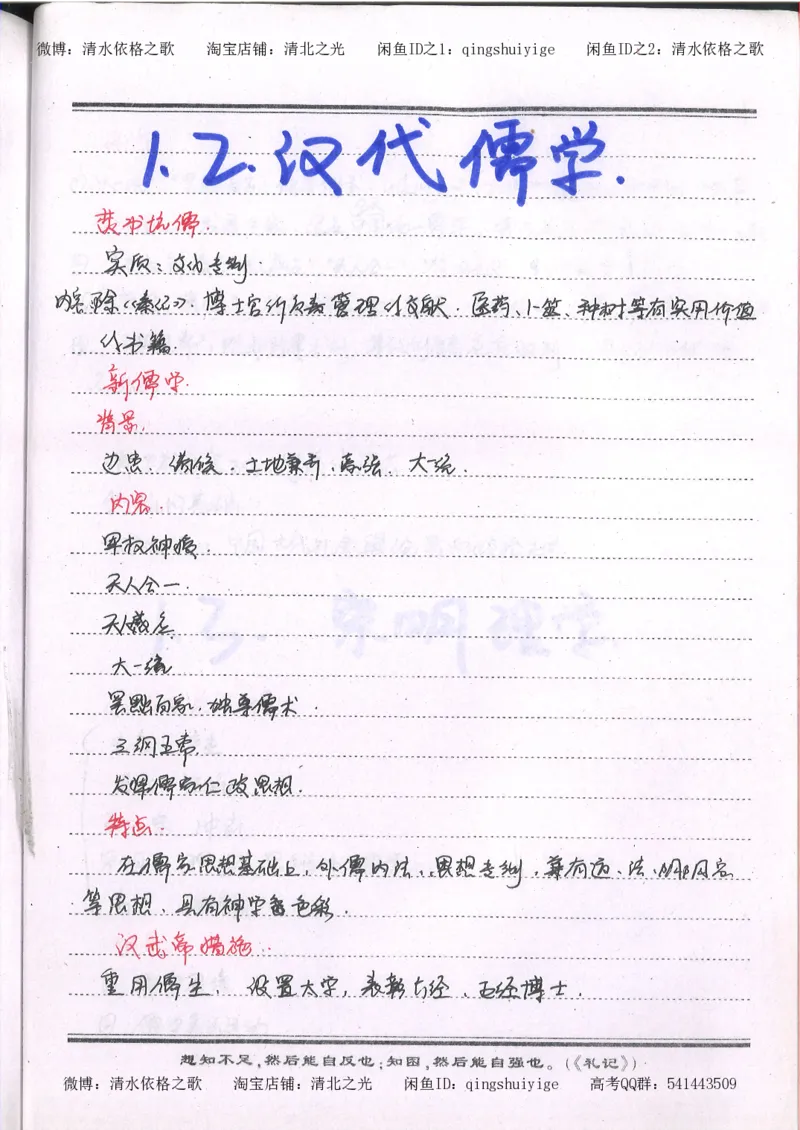 微博：清水依格之歌 淘宝店铺：清北之光 闲鱼ID之1：qingshuiyige 闲鱼ID之2：清水依格之歌
1.2.汉代儒学.
焚书坑儒.
实质：文化专制.
内容 除《秦记》. 博士官 管理 文献. 医药、卜筮、种树等有实用价值
的书籍.
新儒学.
背景.
边患. 土地兼并. 大一统.
内容.
君权神授.
天人合一.
天人感应.
大一统
罢黜百家. 独尊儒术.
三纲五常.
发挥儒家仁政思想.
特点.
在儒家思想基础上, 外儒内法, 思想专制, 兼有道、法、阴阳五行
等思想, 具有神学 色彩.
汉武帝措施.
重用儒生. 设置太学, 表彰六经. 五经博士.
想知不足，然后能自反也；知困，然后能自强也。（《礼记》）
微博：清水依格之歌 淘宝店铺：清北之光 闲鱼ID：qingshuiyige 高考QQ群：541443509